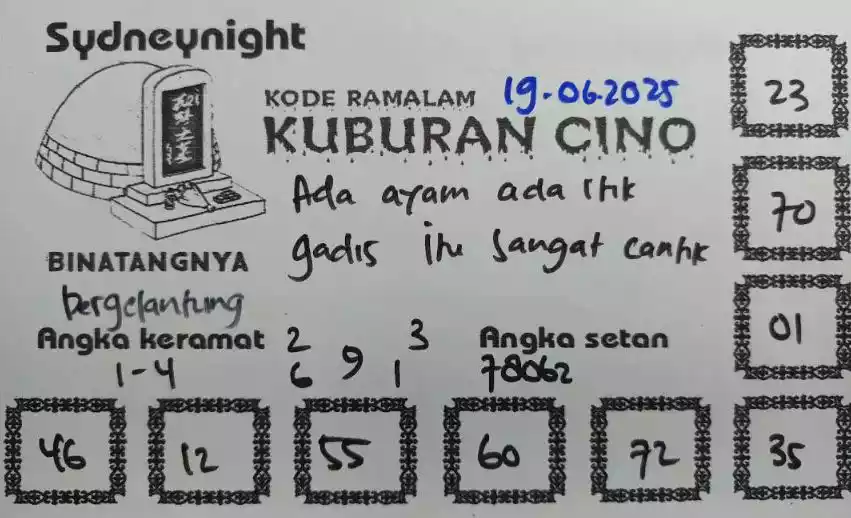 Sydneynight
KODE RAMALAM 19-06-2025
KUBURAN CINO
Ada ayam ada itik
gadis itu sangat cantik
BINATANGNYA
bergelantung
Angka keramat
1-4
2 3
6 9 1
Angka setan
78062
23
70
01
46 12 55 60 72 35